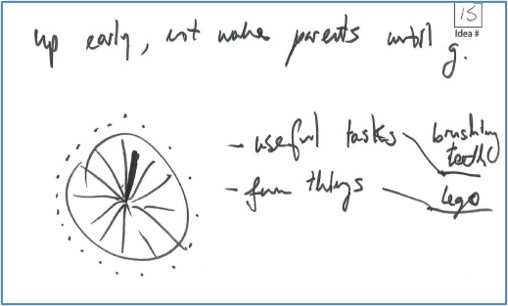 15
Idea #
up early, not wake parents until 9.
- useful tasks
brushing
teeth
- fun things
lego